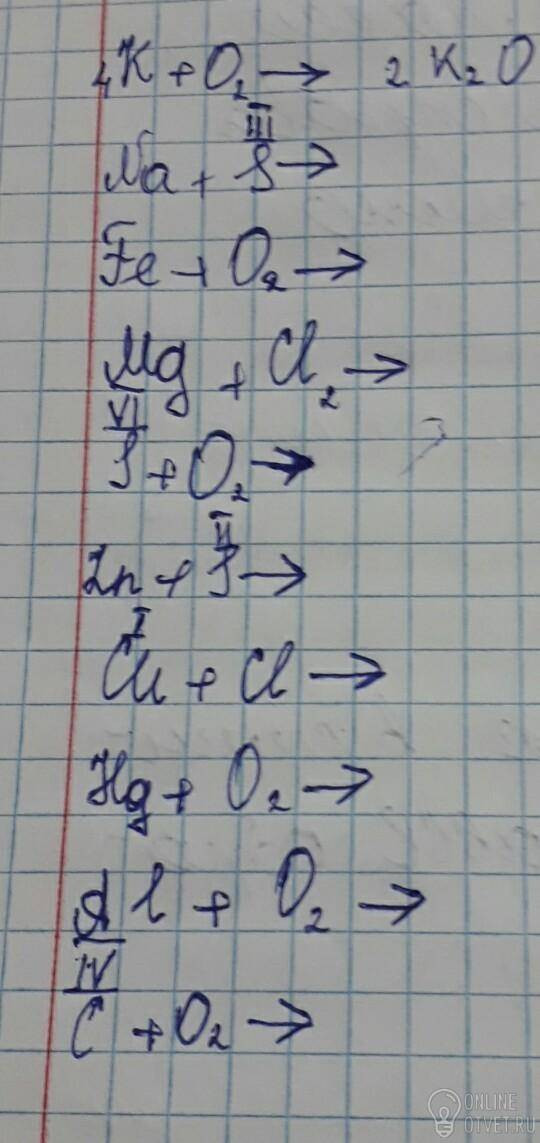 4K + O₂ → 2 K₂O
II
III
Na + S →
Fe + O₂ →
Mg + Cl₂ →
VI
S + O₂ →
II
Zn + S →
I
Cu + Cl →
Hg + O₂ →
Al + O₂ →
IV
C + O₂ →
ONLINE
OTVET.RU